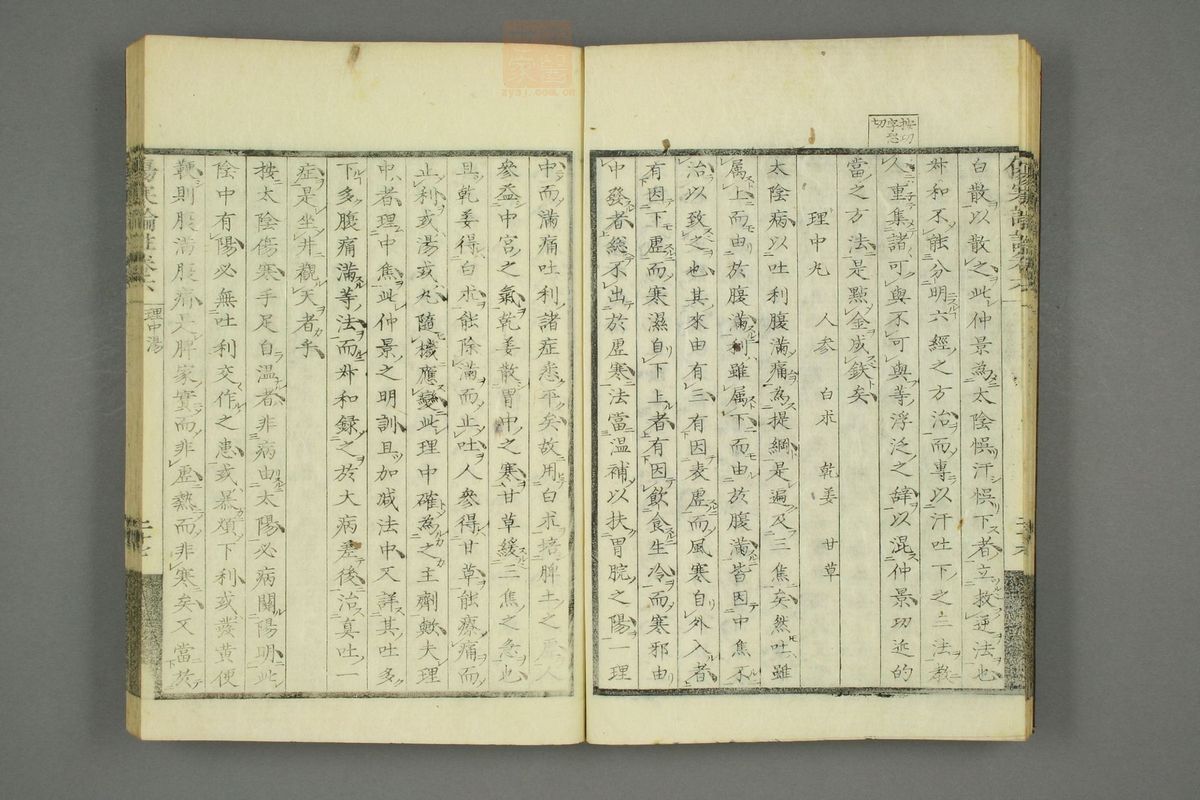 按切
字恐
切
白散以散之此仲景為太陰悞汗悞下者立救逆法也
叔和不能分明六經之方治而專以汗吐下之三法教
人重集諸可與不可與等浮泛之辭以混仲景切近的
當之方法是點金成鉄矣
理中丸 人参 白朮 乾姜 甘草
太陰病以吐利腹滿痛為提綱是遍及三焦矣然吐雖
属上而由於腹滿利雖属下而由於腹滿皆因中焦不
治以致之也其來由有三有因表虛而風寒自外入者
有因下虛而寒濕自下上者有因飲食生冷而寒邪由
中發者総不出於虛寒法當温補以扶胃脘之陽一理
中而滿痛吐利諸症悉平矣故用白朮培脾土之虛人
參益中宮之氣乾姜散胃中之寒甘草緩三焦之急也
且乾姜得白朮能除滿而止吐人參得甘草能療痛而
止利或湯或丸隨機應變此理中確為之主劑歟夫理
中者理中焦此仲景之明訓且加减法中又詳其吐多
下多腹痛滿等法而叔和録之於大病差後治真吐一
症是坐井觀天者乎
按太陰傷寒手足自温者非病由太陽必病關陽明此
陰中有陽必無吐利交作之患或暴煩下利或發黄便
鞕則腹滿腹痛是脾家實而非虛熱而非寒矣又當於
理中湯